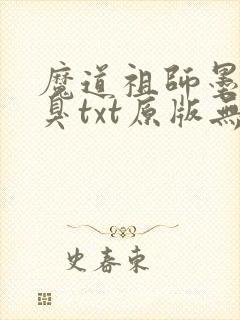 魔道祖師墨
臭txt原版無
史春東